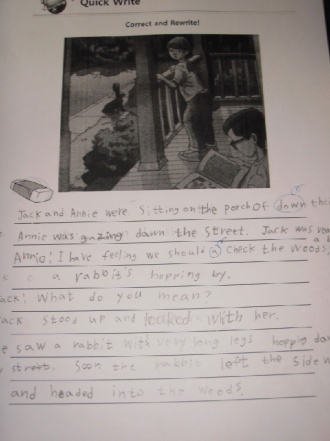 Quick Write
Correct and Rewrite!
Jack and Annie were sitting on the porch of down th
Annie was gazing down the street. Jack was rea
Annie! I have feeling we should a check the woods,
a rabbit's hopping by.
ack! What do you mean?
ack stood up and looked with her.
e saw a rabbit with very long legs hopping do
street. Soon the rabbit left the side w
and headed into the woods.